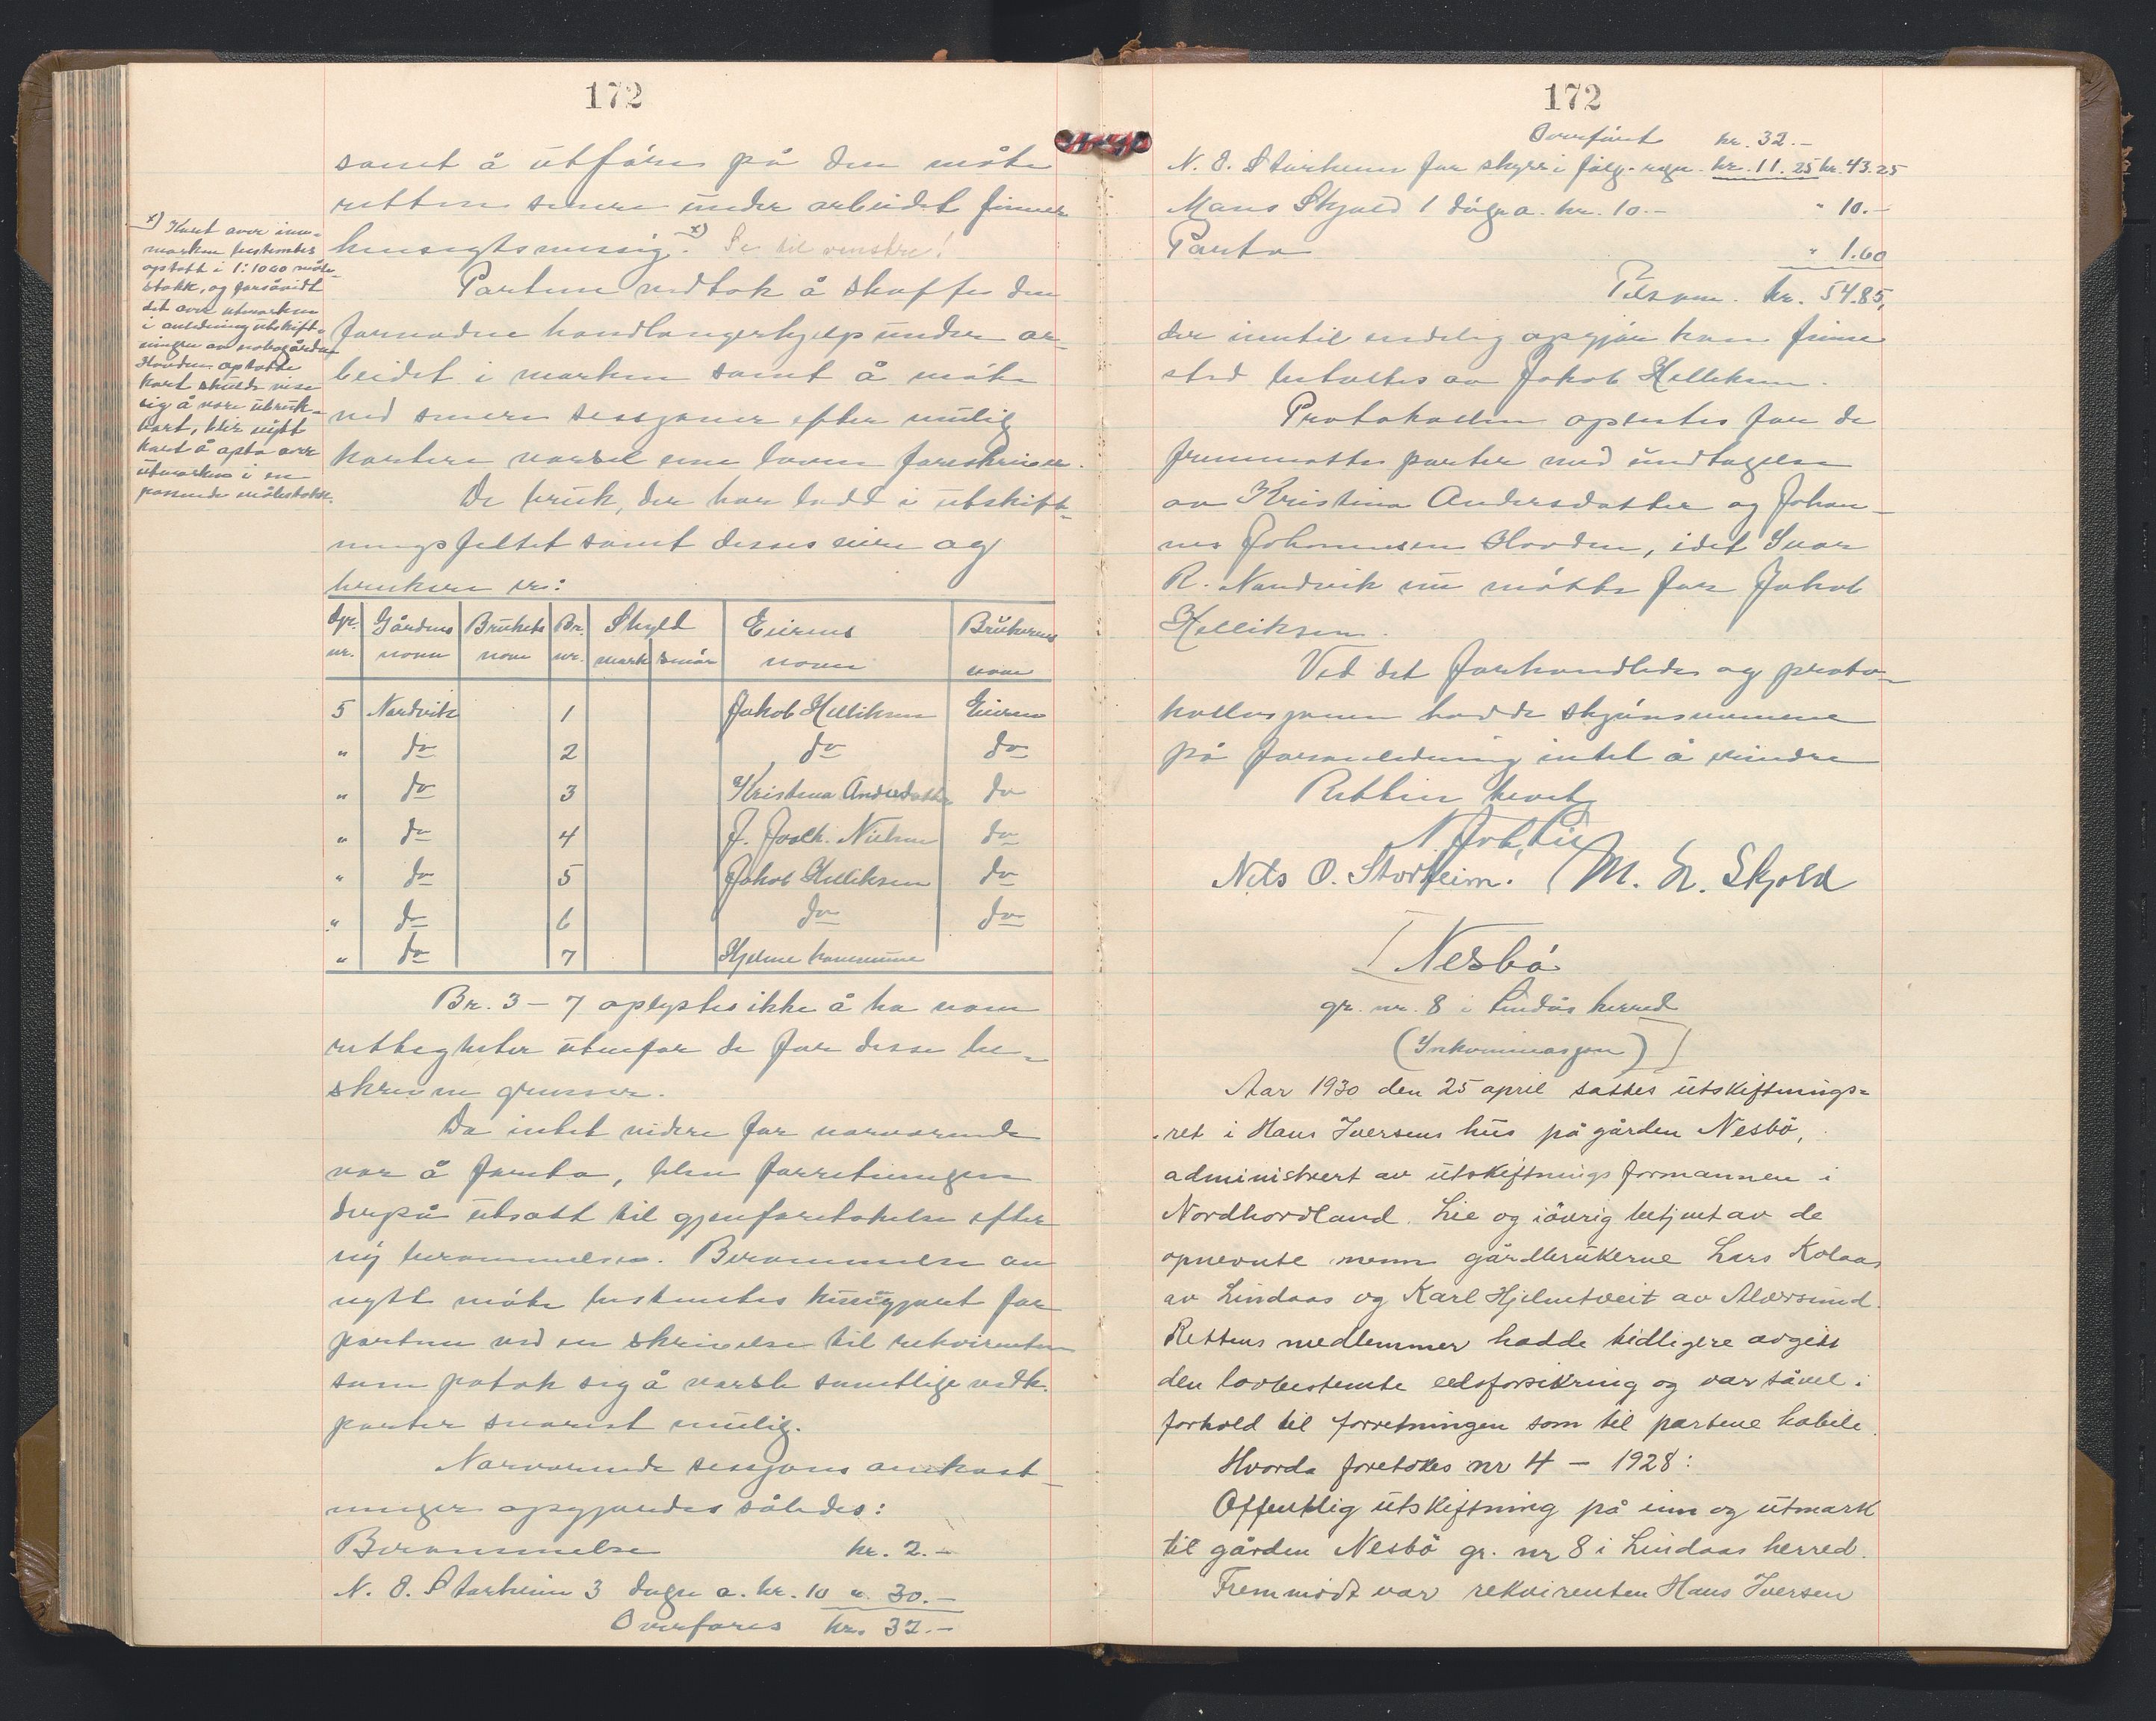 172
samt å utføres på den måte
retten senere under arbeidet finner
hensigtsmessig. x) Se til venstre!
x) Kart over inn-
marken bestemtes
optatt i 1:1000 måle-
stokk, og forsåvidt
det over utmarken
i anledning utskift-
ningen av nabogården
Hovden optatte
kart skulde vise
sig å være ubruk-
bart, blir nytt
kart å opta over
utmarken i en
passende målestokk.
Partene vedtok å skaffe den
fornødne handlangerhjelp under ar-
beidet i marken samt å møte
ved senere sessjoner efter mulig
kortere varsel enn loven foreskriver.
De bruk, der har lodd i utskift-
ningsfeltet samt disses eiere og
brukere er:
Gr. nr. Gårdens navn Brukets navn Br. nr. Skyld mark smør Eierens navn Brukerens navn
5 Nordvik 1 Jakob Helliksen Eieren
" do 2 do do
" do 3 Kristina Andersdatter do
" do 4 J. Joach. Nielsen do
" do 5 Jakob Helliksen do
" do 6 do do
" do 7 Hjelme kommune
Br. 3 – 7 oplystes ikke å ha noen
rettigheter utenfor de for disse be-
skrevne grenser.
Da intet videre for nærværende
var å foreta, blev forretningen
derpå utsatt til gjenforetakelse efter
ny berammelse. Berammelse av
nytt møte bestemtes kunngjort for
partene ved en skrivelse til rekvirenten
som påtok sig å varsle samtlige vedk.
parter snarest mulig.
Nærværende sessjons omkost-
ninger opgjordes således:
Berammelse kr. 2.–
N. O. Storheim 3 døgn a. kr. 10 " 30.–
Overføres kr. 32.–
172
Overført kr. 32.–
N. O. Storheim for skyss i følg. regn. kr. 11.25 kr. 43.25
Mons Skjold 1 døgn a. kr. 10.– " 10.–
Porto " 1.60
Tilsam. kr. 54.85,
der inntil endelig opgjør kan finne
sted betaltes av Jakob Helliksen.
Protokollen oplestes for de
fremmøtte parter med undtagelse
av Kristina Andersdatter og Johan-
nes Johannesen Hovden, idet Ivar
R. Nordvik nu møtte for Jakob
Helliksen.
Ved det forhandlede og proto-
kollasjonen hadde skjønsmennene
på foranledning intet å erindre
Retten hevet
N. Joh. Lie
Nils O. Storheim. M. N. Skjold
[Nesbö
gr. nr. 8 i Lindås herred
(Inkaminasjon)]
Aar 1930 den 25 april sattes utskiftnings-
ret i Hans Iversens hus på gården Nesbö,
administrert av utskiftningsformannen i
Nordhordland. Lie og iövrig betjent av de
opnevnte menn gårdbrukerne Lars Kolaas
av Lindaas og Karl Hjelmtveit av Alversund.
Rettens medlemmer hadde tidligere avgitt
den lovbestemte edsforsikring og var såvel i
forhold til forretningen som til partene habile.
Hvorda foretokes nr 4 – 1928:
Offentlig utskiftning på inn og utmark
til gården Nesbö gr. nr 8 i Lindaas herred.
Fremmödt var rekvirenten Hans Iversen